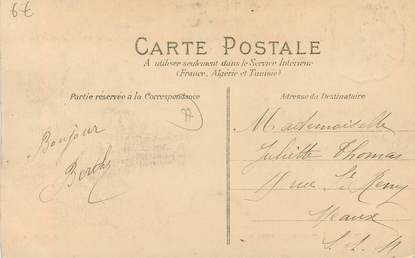 6€
CARTE POSTALE
A utiliser seulement dans le Service Intérieur
(France, Algérie et Tunisie)
Partie réservée à la Correspondance
Adresse du Destinataire
77
Bonjour
Berthe
Mademoiselle
Juliette Thomas
rue St Remy
Meaux
S. et M.